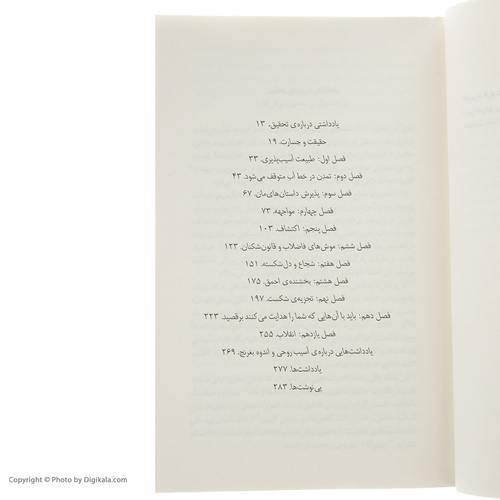 یادداشتی درباره‌ی تحقیق. ۱۳
حقیقت و جسارت. ۱۹
فصل اول: طبیعت آسیب‌پذیری. ۳۳
فصل دوم: تمدن در خط آب متوقف می‌شود. ۴۳
فصل سوم: پذیرش داستان‌های‌مان. ۶۷
فصل چهارم: مواجهه. ۷۳
فصل پنجم: اکتشاف. ۱۰۳
فصل ششم: موش‌های فاضلاب و قانون‌شکنان. ۱۲۳
فصل هفتم: شجاع و دل‌شکسته. ۱۵۱
فصل هشتم: بخشنده‌ی احمق. ۱۷۵
فصل نهم: تجزیه‌ی شکست. ۱۹۷
فصل دهم: باید با آن‌هایی که شما را هدایت می‌کنند برقصید. ۲۲۳
فصل یازدهم: انقلاب. ۲۵۵
یادداشت‌هایی درباره‌ی آسیب روحی و اندوه بغرنج. ۲۶۹
یادداشت‌ها. ۲۷۷
پی‌نوشت‌ها. ۲۸۳
Copyright © Photo by Digikala.com